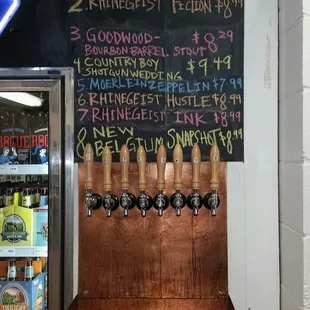 2. RHINEGEIST FICTION $8.99
3 GOODWOOD- $8.29
BOURBON BARREL STOUT
4 COUNTRY BOY $9.49
SHOTGUN WEDDING
5. MOERLEIN ZEPPELIN $7.99
6. RHINEGEIST HUSTLE $8.99
7. RHINEGEIST INK $8.99
8 NEW
BELGIUM SNAPSHOT $8.99